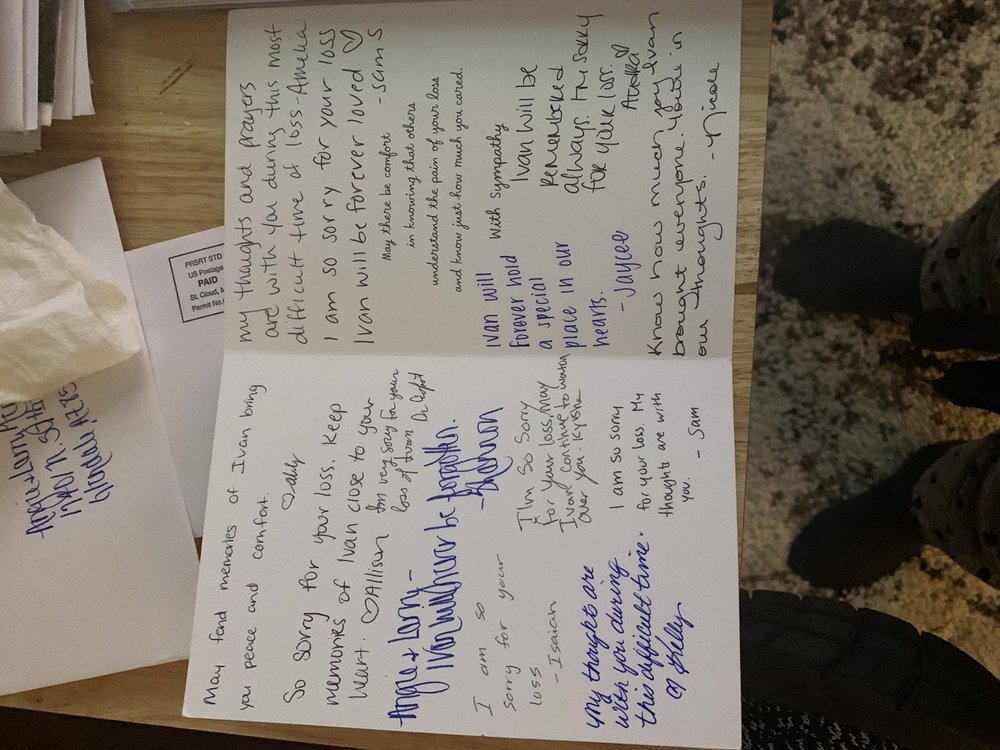 Angie + Larry
PRSRT STD
US Postage
PAID
St. Cloud, M
Permit No.
May fond memories of Ivan bring
you peace and comfort.
So sorry for your loss. Keep
memories of Ivan close to your
heart. ♡ Allison
I'm very sorry for your
loss of Ivan
Angie + Larry -
Ivan will never be forgotten.
- Shannon
I am so
sorry for your
loss
- Isaiah
I'm So Sorry
for Your loss. May
Ivan continue to watch
over you -
my thoughts are
with you during
this difficult time.
♡ Kelly
I am so sorry
for your loss. My
thoughts are with
you. - Sam
my thoughts and prayers
are with you during this most
difficult time of loss - Amelia
I am so sorry for your loss
Ivan will be forever loved ♡
- Sam S
May there be comfort
in knowing that others
understand the pain of your loss
and know just how much you cared.
With sympathy
Ivan will
forever hold
a special
place in our
hearts.
- Jaycee
Ivan will be
remembered
always. I'm sorry
for your loss.
Know how much joy Ivan
brought everyone. You're in
our thoughts. - Nicole